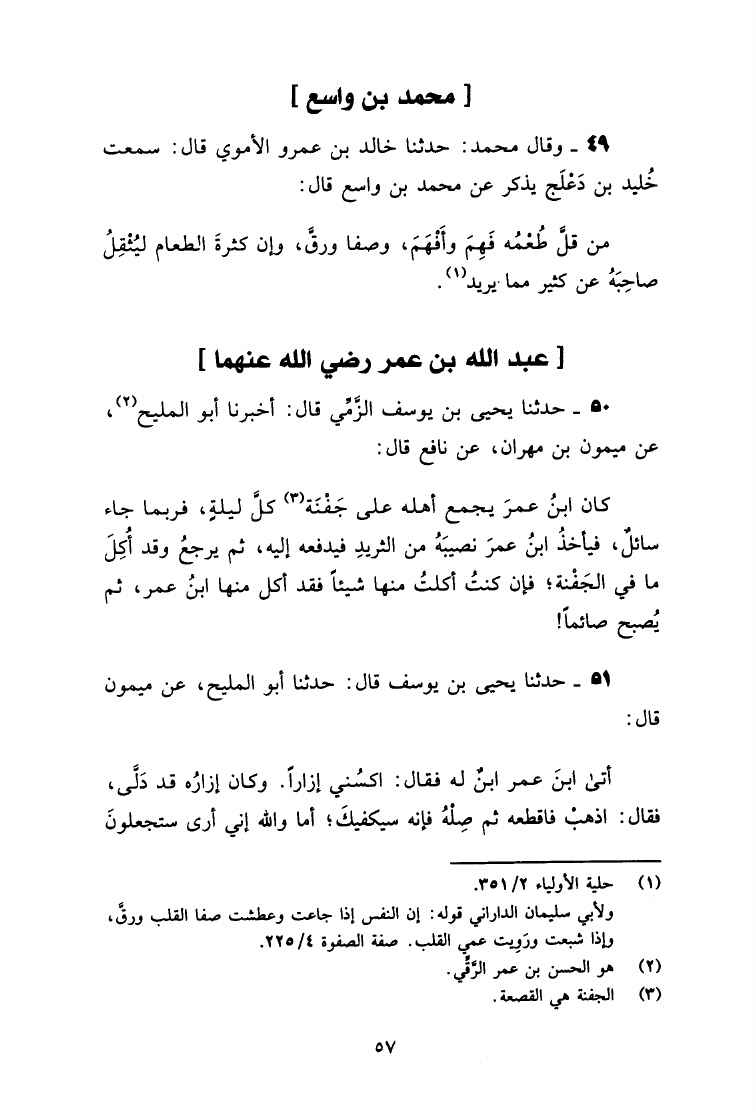 [ محمد بن واسع ]
٤٩ ـ وقال محمد: حدثنا خالد بن عمرو الأموي قال: سمعت
خُليد بن دَعْلَج يذكر عن محمد بن واسع قال:
من قلَّ طُعْمُه فَهِمَ وأَفْهَمَ، وصفا ورقَّ، وإن كثرةَ الطعام ليُثْقِلُ
صاحِبَهُ عن كثير مما يريد(١).
[ عبد الله بن عمر رضي الله عنهما ]
٥٠ ـ حدثنا يحيى بن يوسف الزَّمِّي قال: أخبرنا أبو المليح(٢)،
عن ميمون بن مهران، عن نافع قال:
كان ابنُ عمرَ يجمع أهله على جَفْنَة(٣) كلَّ ليلةٍ، فربما جاء
سائلٌ، فيأخذُ ابنُ عمرَ نصيبَهُ من الثريدِ فيدفعه إليه، ثم يرجعُ وقد أُكِلَ
ما في الجَفْنة؛ فإن كنتُ أكلتُ منها شيئاً فقد أكل منها ابنُ عمر، ثم
يُصبح صائماً!
٥١ ـ حدثنا يحيى بن يوسف قال: حدثنا أبو المليح، عن ميمون
قال:
أتىٰ ابنَ عمر ابنٌ له فقال: اكسُني إزاراً. وكان إزارُه قد دَلَّى،
فقال: اذهبْ فاقطعه ثم صِلْهُ فإنه سيكفيكَ؛ أما والله إني أرى ستجعلونَ
(١) حلية الأولياء ٢/ ٣٥١.
ولأبي سليمان الداراني قوله: إن النفس إذا جاعت وعطشت صفا القلب ورقَّ،
وإذا شبعت ورَوِيت عمي القلب. صفة الصفوة ٤/ ٢٢٥.
(٢) هو الحسن بن عمر الرَّقِّي.
(٣) الجفنة هي القصعة.
٥٧